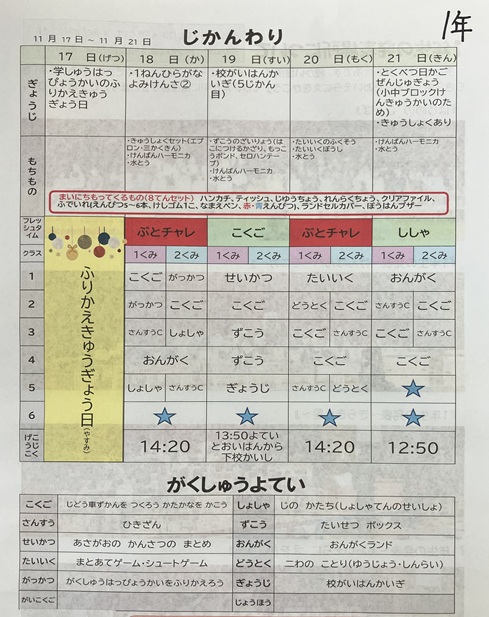 1年
11月17日～11月21日
じかんわり
17 日(げつ) 18 日(か) 19 日(すい) 20 日(もく) 21 日(きん)
ぎょうじ
・学しゅうはっ
ぴょうかいのふ
りかえきゅう
ぎょう日
・1ねんひらがな
よみけんさ②
・校がいはんか
いぎ(5じかん
目)
・とくべつ日かご
ぜんじゅぎょう
(小中ブロックけ
んきゅうかいのた
め)
・きゅうしょくあり
もちもの
・きゅうしょくセット(エプ
ロン・三かくきん)
・けんばんハーモニカ
・水とう
・ずこうのざいりょう(は
こにつけるかざり、もっこ
うボンド、セロハンテー
プ)
・けんばんハーモニカ
・水とう
・たいいくのふくそう
・たいいくぼうし
・水とう
・けんばんハーモニカ
・水とう
まいにちもってくるもの(8てんセット) ハンカチ、ティッシュ、じゆうちょう、れんらくちょう、クリアファイル、
ふでいれ(えんぴつ5～6本、けしゴム1こ、なまえペン、赤・青えんぴつ)、ランドセルカバー、ぼうはんブザー
フレッシュタイム ぷとチャレ こくご ぷとチャレ ししゃ
クラス 1くみ 2くみ 1くみ 2くみ 1くみ 2くみ 1くみ 2くみ
ふりかえきゅうぎょう日(やすみ)
1 こくご がっかつ せいかつ たいいく おんがく
2 がっかつ こくご こくご どうとく こくご さんすうC こくご
3 さんすうC しょしゃ ずこう こくご さんすうC こくご さんすうC
4 おんがく ずこう こくご こくご
5 しょしゃ さんすうC ぎょうじ さんすうC どうとく ★
6 ★ ★ ★ ★
げこうじこく 14:20 13:50よてい
とおいはんから
下校かいし 14:20 12:50
がくしゅうよてい
こくご じどう車ずかんを つくろう かたかなを かこう しょしゃ じの かたち(しょしゃてんのせいしょ)
さんすう ひきざん ずこう たいせつ ボックス
せいかつ あさがおの かんさつの まとめ おんがく おんがくランド
たいいく まとあてゲーム・シュートゲーム どうとく 二わの ことり(ゆうじょう・しんらい)
がっかつ がくしゅうはっぴょうかいをふりかえろう ぎょうじ 校がいはんかいぎ
がいこくご じょうほう